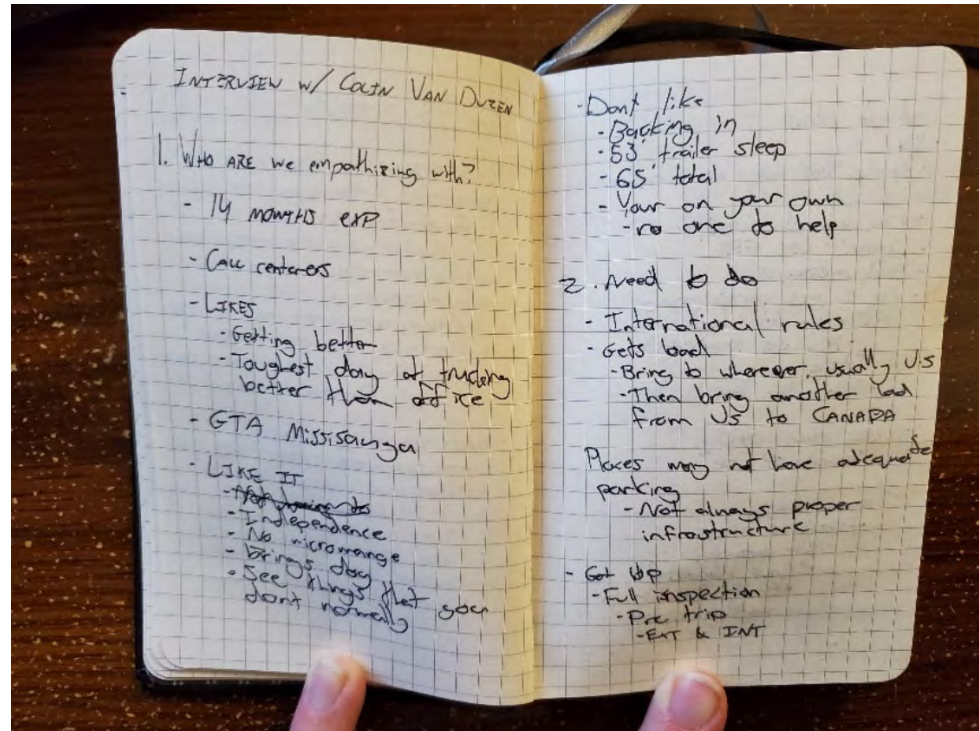 INTERVIEW W/ COLIN VAN DUZEN
1. WHO ARE we empathizing with?
- 14 MONTHS EXP
- CALL centerers
- LIKES
- Getting better
- Toughest day at trucking
better than office
- GTA Missisauga
- LIKE IT
- Independence
- No micromange
- brings dog
- See things that you
dont normally
- Dont like
- Backing in
- 53' trailer sleep
- 65' total
- Your on your own
- no one to help
2. Need to do
- International rules
- Gets load
- Bring to wherever, usually US
- Then bring another load
from US to CANADA
Places may not have adequate
parking
- Not always proper
infrastructure
- Get up
- Full inspection
- Pre trip
- EXT & INT